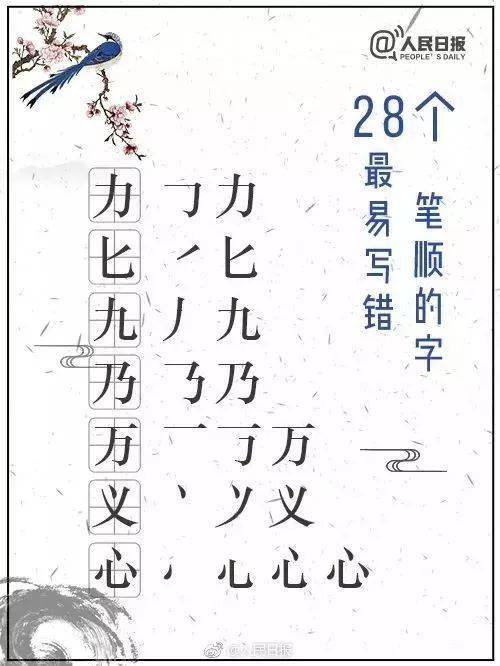 @人民日报
PEOPLE'S DAILY
28个
最易写错
笔顺的字
力 𠃌 力
匕 ㇒ 匕
九 丿 九
乃 ㇋ 乃
万 一 丂 万
义 丶 㐅 义
心 丶 心 心
@人民日报